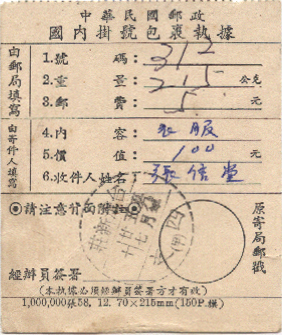 中華民國郵政
國內掛號包裹執據
由郵局填寫
1.號碼: 312
2.重量: 215 公克
3.郵費: 5 元
由寄件人填寫
4.內容: 衣服
5.價值: 100 元
6.收件人姓名: 張信堂
請注意背面附註
原寄局郵戳
經辦員簽署
(本執據必須經辦員簽署方才有效)
1,000,000張58. 12. 70×215mm(150P.模)